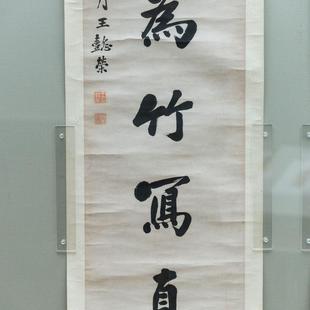 為竹寫真
王懿榮